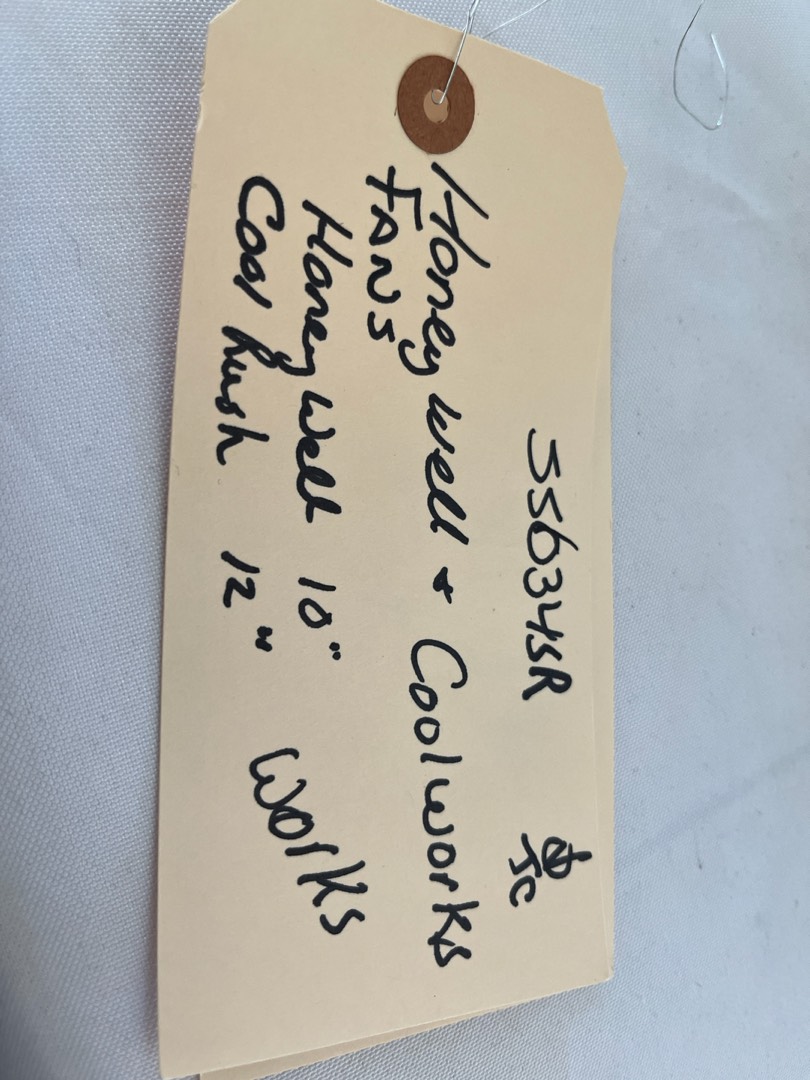 55634SR
JC
Honeywell + Coolworks
FANS
Honeywell 10"
Cool Rush 12"
Works